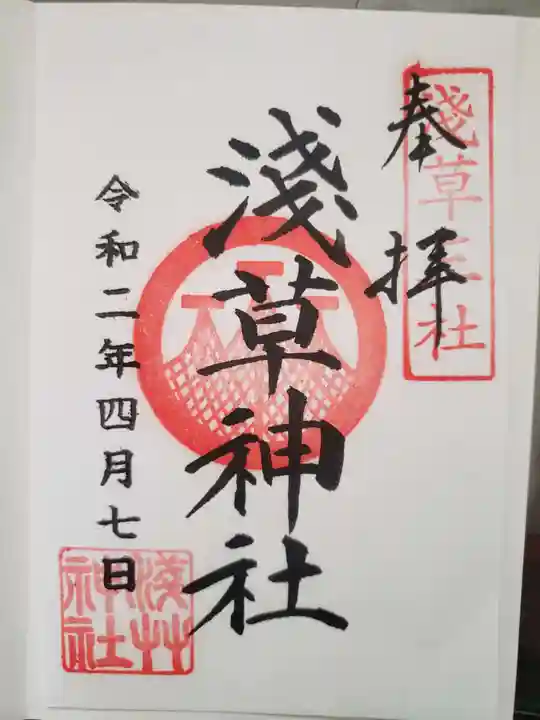 奉拝
淺草三社
淺草神社
令和二年四月七日
淺草神社